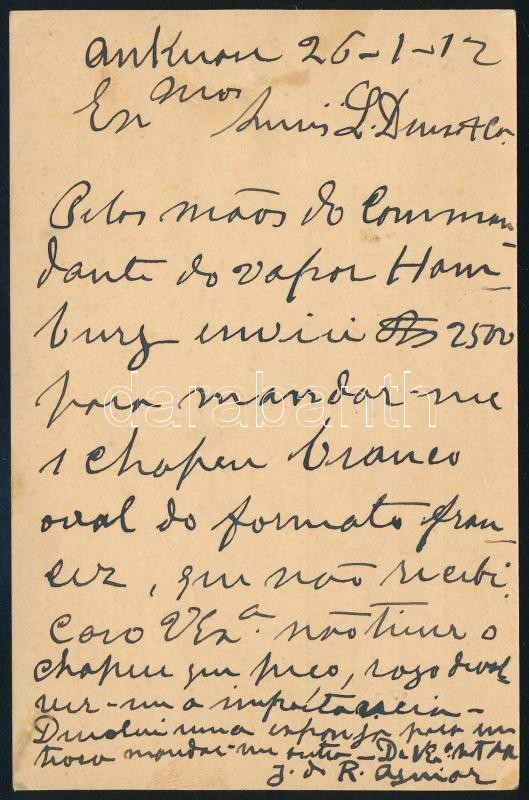 26-1-12
Exmos Luis L. Dias & Ca.
Pelas mãos do Comman-
dante do vapor Ham-
burg enviei Rs 2500
para mandar-me
1 chapeu branco
oval do formato fran-
sez, que não recebi.
Caso VExa. não tiver o
chapeu que peço, rogo devol-
ver-me a importancia -
Devolvi uma esponja para em
troca mandar-me outra - De VExa.
J. de R. Aguiar
darabanth